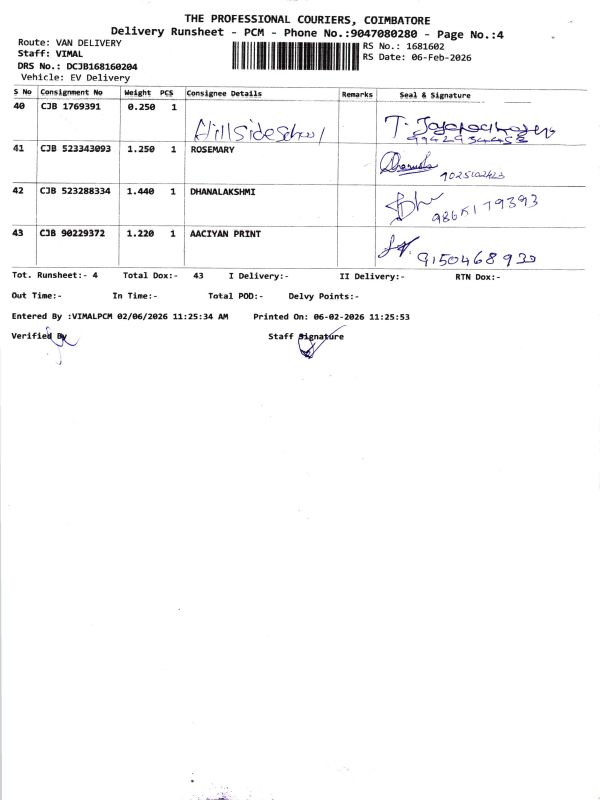 THE PROFESSIONAL COURIERS, COIMBATORE
Delivery Runsheet - PCM - Phone No.:9047080280 - Page No.:4
Route: VAN DELIVERY
Staff: VIMAL
DRS No.: DCJB168160204
Vehicle: EV Delivery
RS No.: 1681602
RS Date: 06-Feb-2026
S No Consignment No Weight PCS Consignee Details Remarks Seal & Signature
40 CJB 1769391 0.250 1 Hillside School
41 CJB 523343093 1.250 1 ROSEMARY
42 CJB 523288334 1.440 1 DHANALAKSHMI
43 CJB 90229372 1.220 1 AACIYAN PRINT 9150468930
Tot. Runsheet:- 4 Total Dox:- 43 I Delivery:- II Delivery:- RTN Dox:-
Out Time:- In Time:- Total POD:- Delvy Points:-
Entered By :VIMALPCM 02/06/2026 11:25:34 AM Printed On: 06-02-2026 11:25:53
Verified By Staff Signature